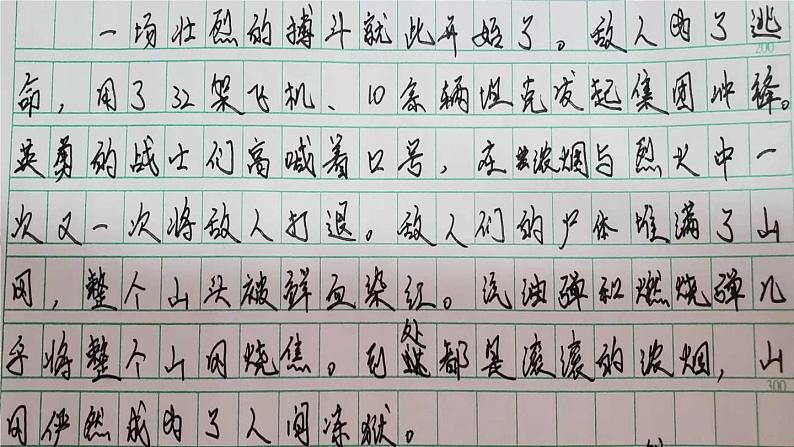 一场壮烈的搏斗就此开始了。敌人为了逃
200
命，用了32架飞机、10余辆坦克发起集团冲锋。
英勇的战士们高喊着口号，在浓烟与烈火中一
次又一次将敌人打退。敌人们的尸体堆满了山
冈，整个山头被鲜血染红。汽油弹和燃烧弹几
乎将整个山冈烧焦。到处都是滚滚的浓烟，山
300
冈俨然成为了人间炼狱。